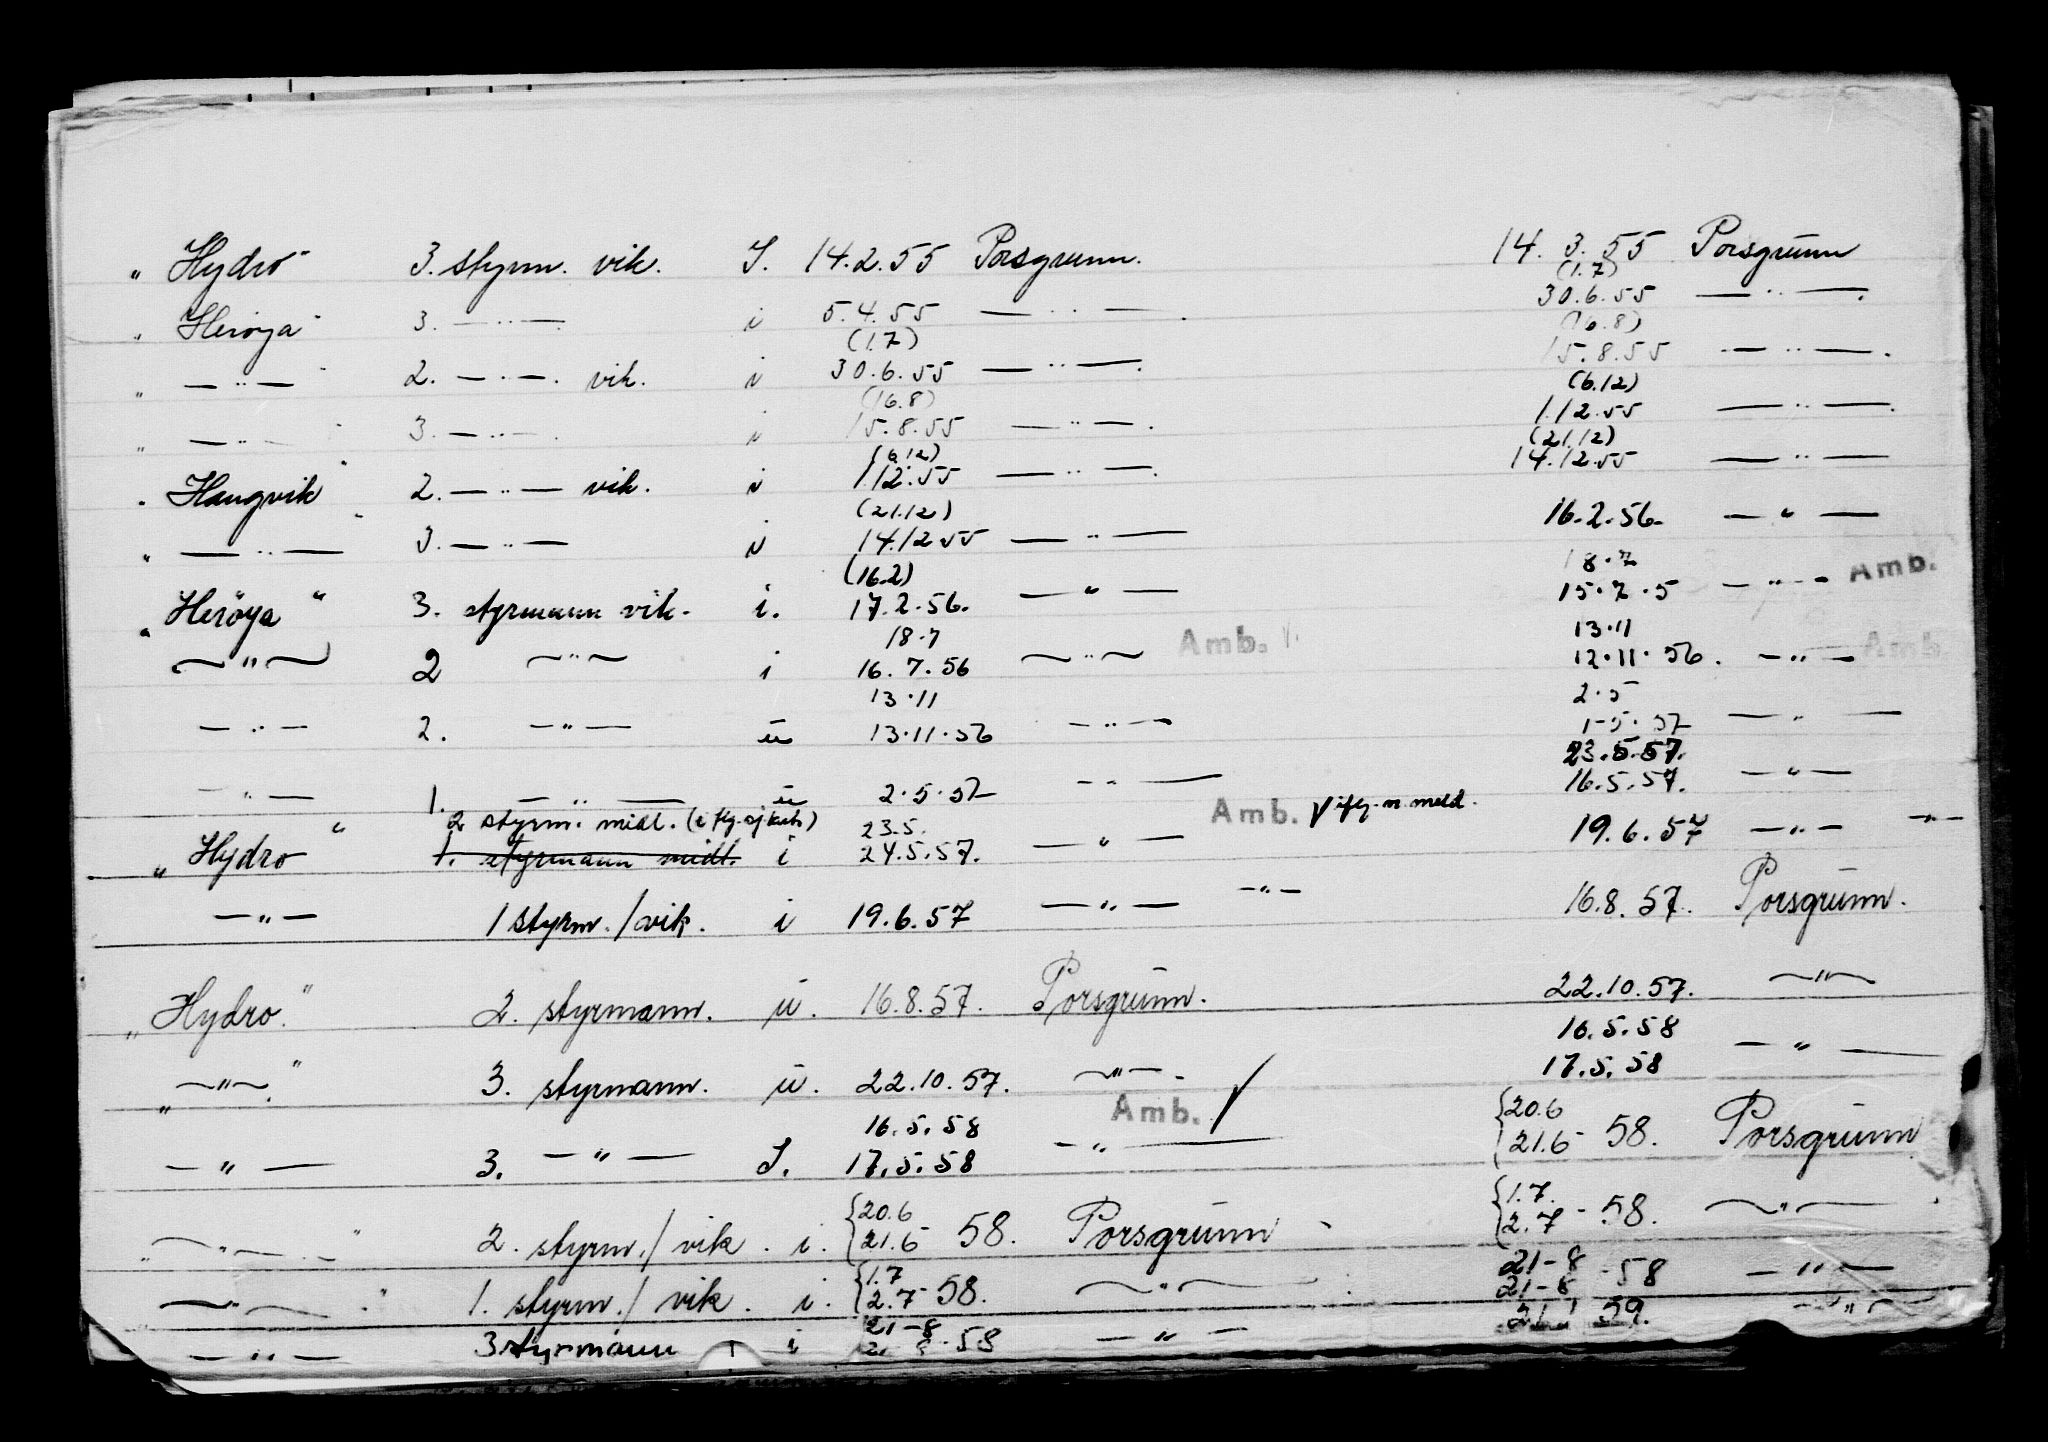 „ Hydro" 3. styrm. vik. I. 14.2.55 Porsgrunn. 14.3.55 Porsgrunn
(1.7)
„ Herøya" 3. — " — i 5.4.55 — " — 30.6.55 — " —
(1.7) (16.8)
„ — " — 2. — " — vik. i 30.6.55 — " — 15.8.55 — " —
(16.8) (6.12)
„ — " — 3. — " — i 15.8.55 — " — 1.12.55 — " —
(6.12) (21.12)
„ Haugvik" 2. — " — vik. i 1.12.55 — " — 14.12.55 — " —
(21.12)
„ — " — 3. — " — i 14.12.55 — " — 16.2.56. — " —
(16.2) 18.7
„ Herøya" 3. styrmann vik. i. 17.2.56. — " — 15.7.5 — " — Amb.
18.7 13.11
— " — 2 — " — i 16.7.56 — " — Amb. 12.11.56. — " — Amb.
13.11 2.5
— " — 2. — " — u 13.11.56 — " — 1-5.57 — " —
23.5.57.
— " — 1. — " — u 2.5.57 — " — 16.5.57. — " —
2 styrm. midl. 23.5. Amb.
„ Hydro" 1. styrmann midl. i 24.5.57. — " — 19.6.57 — " — — " —
— " — 1 styrm./vik. i 19.6.57 — " — — " — 16.8.57. Porsgrunn.
„ Hydro." 2. styrmann. u. 16.8.57. Porsgrunn. 22.10.57. — " —
16.5.58
„ — " —" 3. styrmann. u. 22.10.57. — " — 17.5.58 — " —
16.5.58 Amb. {20.6
— " — 3. — " — I. 17.5.58 — " — {21.6 - 58. Porsgrunn
{20.6 {1.7.
„ — " —" 2. styrm./vik. i. {21.6 - 58. Porsgrunn {2.7 - 58. — " —
{1.7 21-8
— " —" 1. styrm./vik. i. {2.7 - 58. — " — 21-8 - 58 — " —
21-8
— " — 3 styrmann i 58 — " — 59. — " —